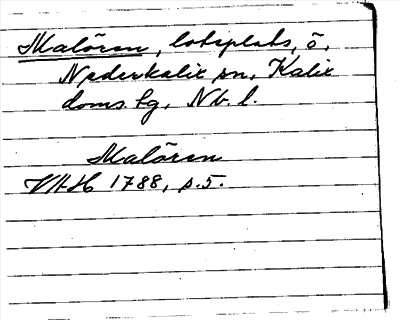 Malören, lotsplats, ö,
Nederkalix sn, Kalix
doms. tg, Nb. l.
Malören
VAH 1788, s. 5.